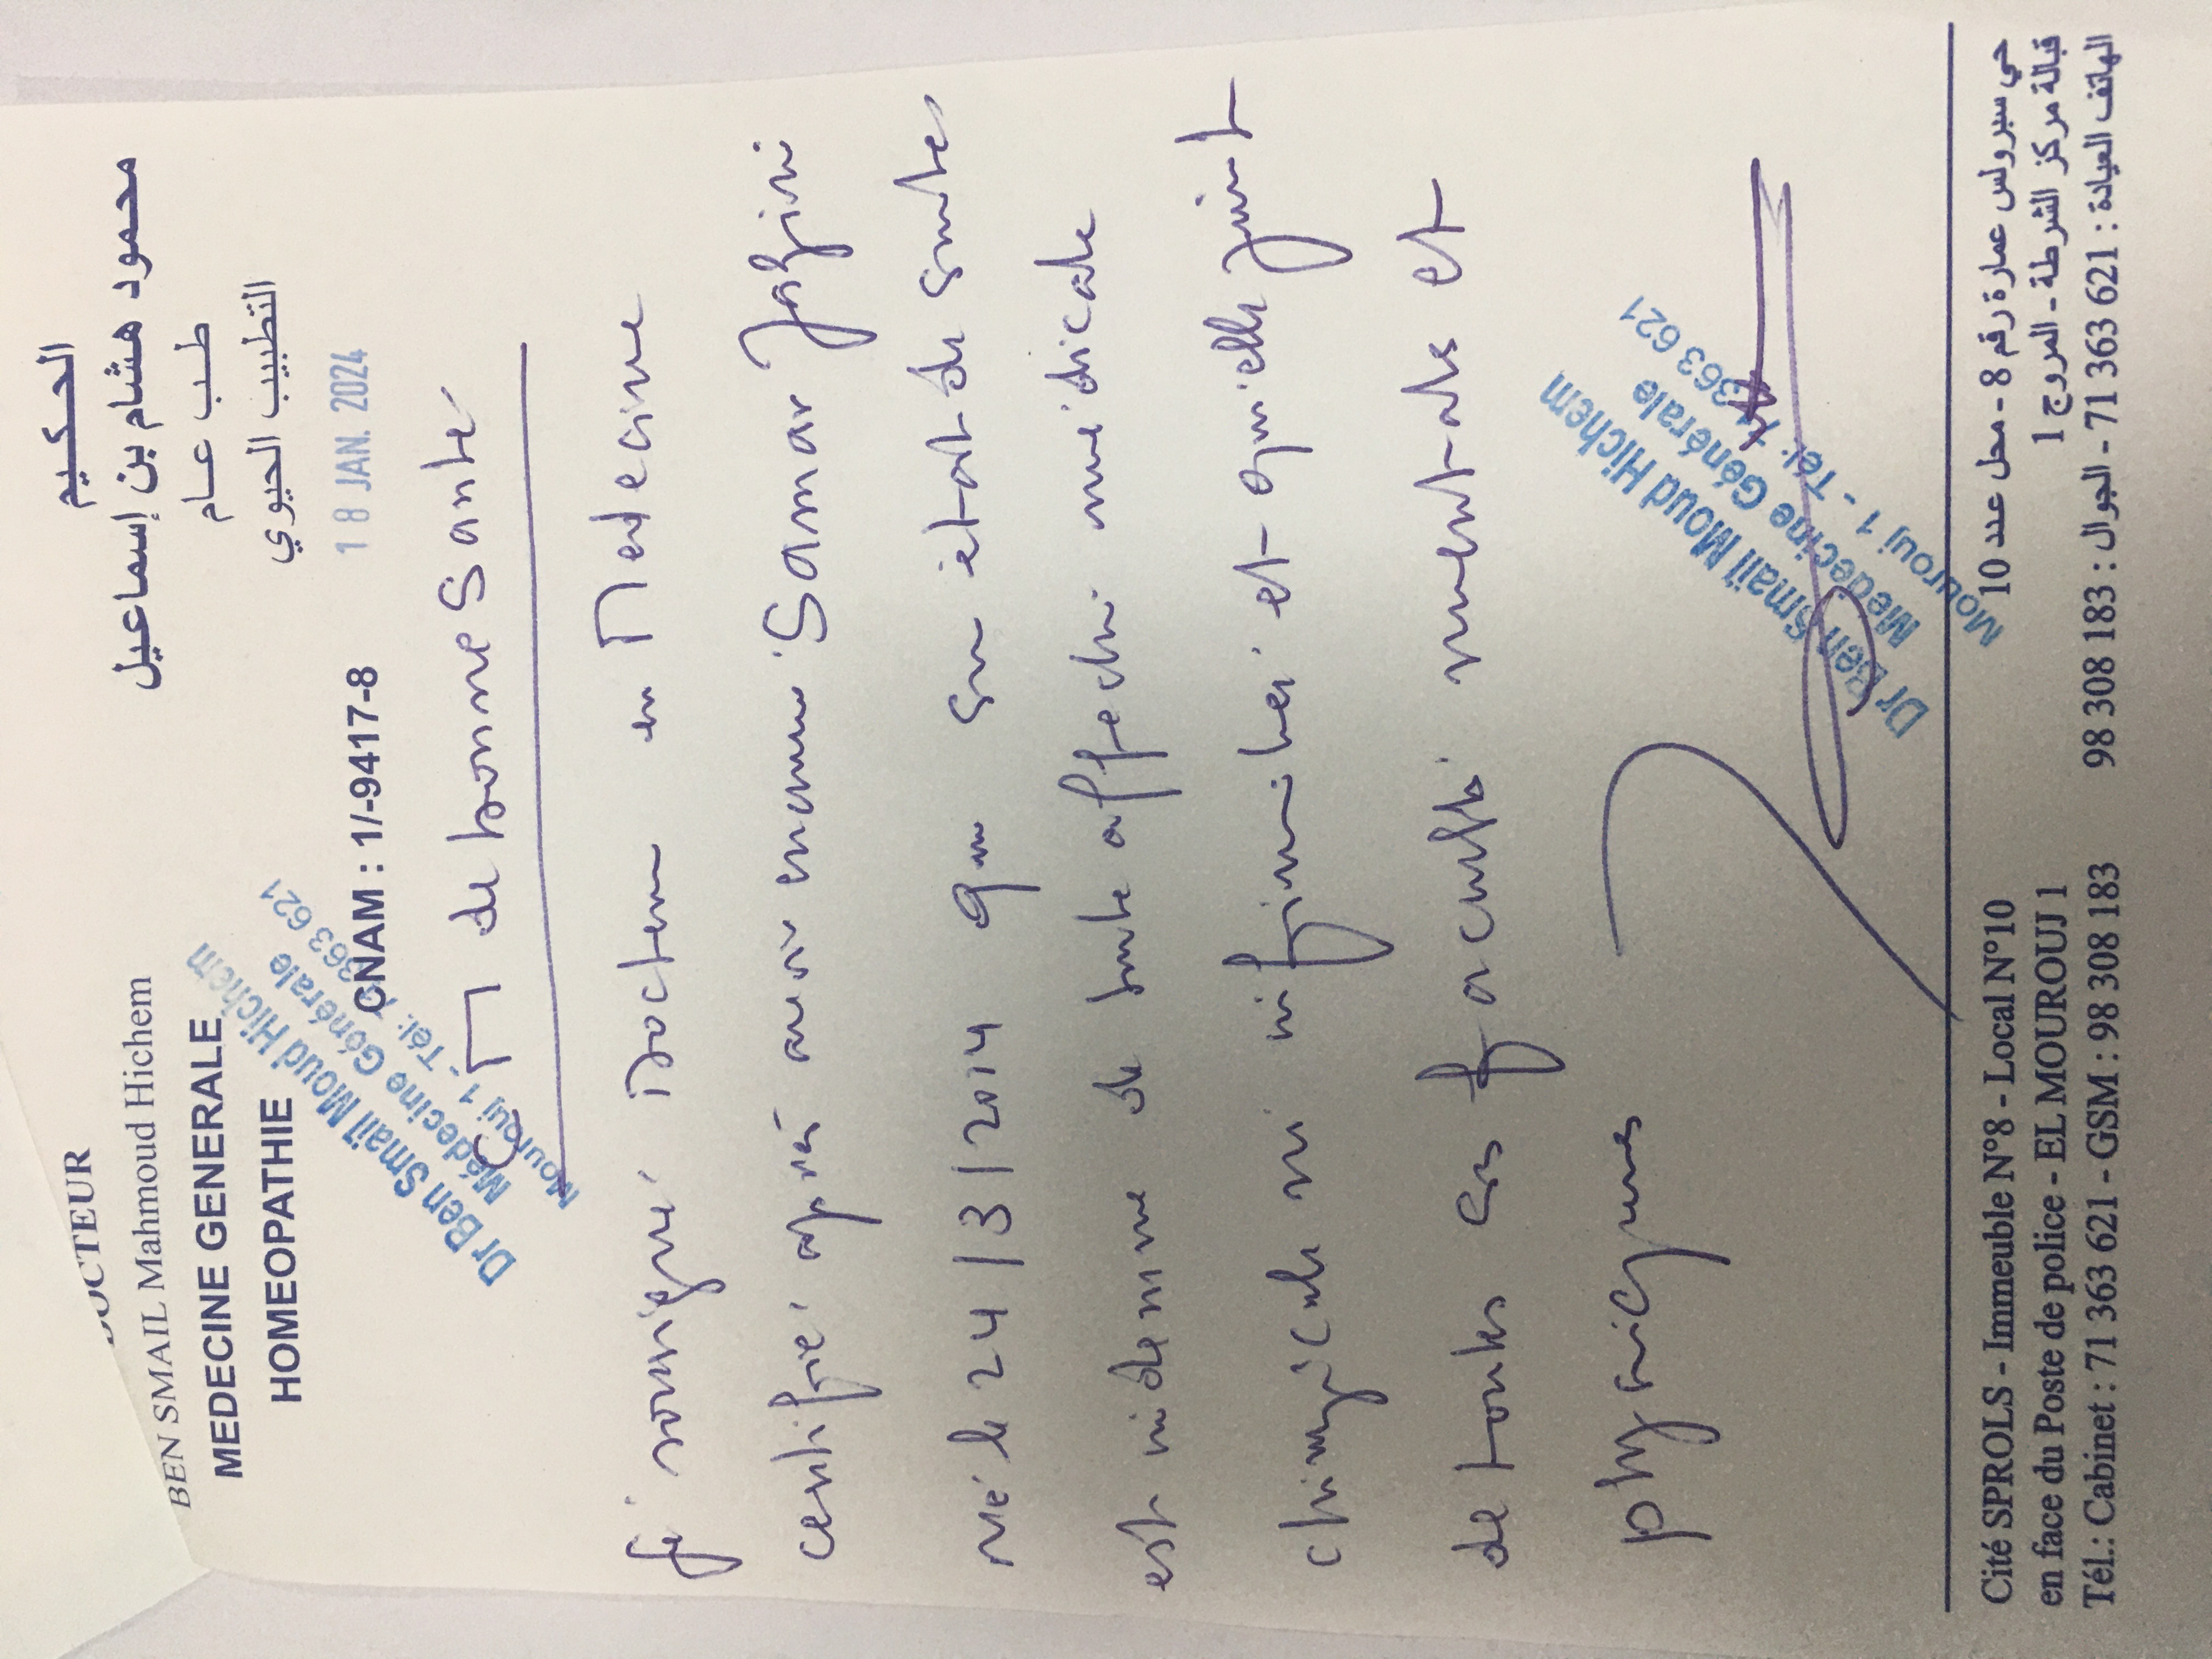 DOCTEUR
BEN SMAIL Mahmoud Hichem
MEDECINE GENERALE
HOMEOPATHIE
الحكيم
محمود هشام بن إسماعيل
طب عام
التطبيب الحيوي
CNAM : 1/-9417-8
18 JAN. 2024
Dr Ben Smail Moud Hichem
Médecine Générale
Mourouj 1 - Tél: 71 363 621
CM de bonne Santé
Je soussigné Docteur en Medecine
certifié après avoir examiné Samar
né le 24/3/2014 que son état de santé
est indemne de toute affection médicale
chirurgicale ni infirmité et qu'elle jouit
de toutes ces facultés mentales et
physiques
Dr Ben Smail Moud Hichem
Médecine Générale
Mourouj 1 - Tél: 71 363 621
Cité SPROLS - Immeuble N°8 - Local N°10
en face du Poste de police - EL MOUROUJ 1
Tél.: Cabinet : 71 363 621 - GSM : 98 308 183
حي سبرولس عمارة رقم 8 - محل عدد 10
قبالة مركز الشرطة - المروج 1
الهاتف العيادة : 621 363 71 - الجوال : 183 308 98